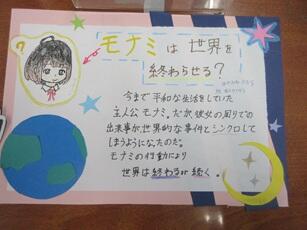 ?
モナミは世界を
終わらせる?
今まで平和な生活をしていた
主人公モナミ。だが彼女の周りでの
出来事が世界的な事件とシンクロして
しまうようになったのだ。
モナミの行動により
世界は終わるか続く。